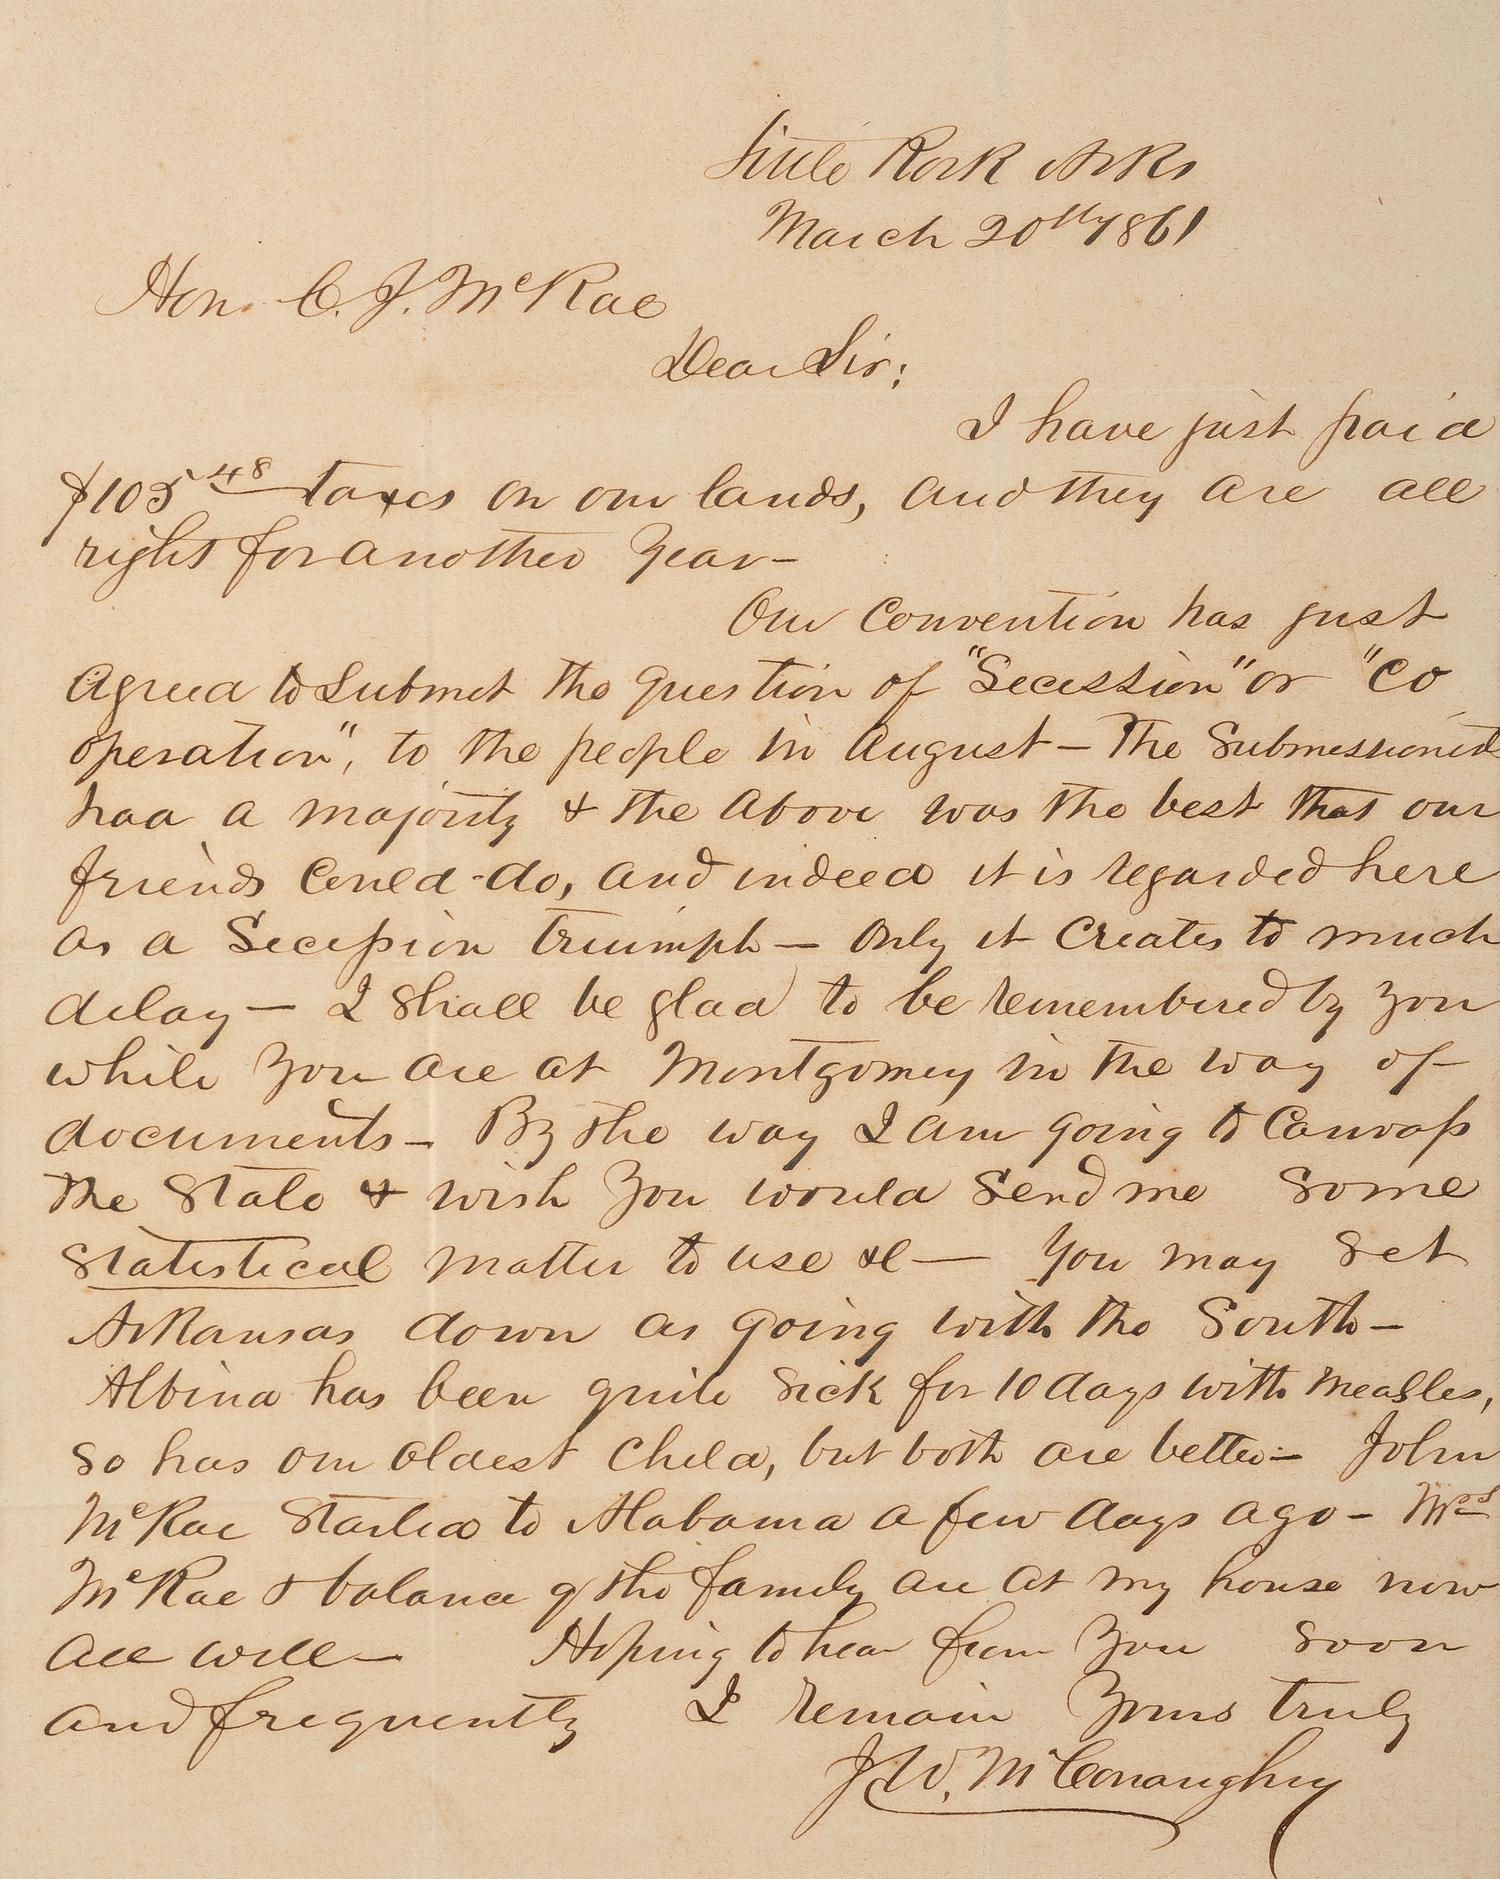 Little Rock Arks
March 20th 1861
Hon. C. J. McRae
Dear Sir:
I have just paid
$105 48 taxes on our lands, and they are all
right for another year—
Our Convention has just
agreed to submit the question of "Secession" or "Co
operation", to the people in August — The Submissionists
had a majority & the above was the best that our
friends could do, and indeed it is regarded here
as a Secession triumph — only it creates to much
delay — I shall be glad to be remembered by you
while you are at Montgomery in the way of
documents — By the way I am going to Canvass
the State & wish you would send me some
statistical matter to use &c — You may set
Arkansas down as going with the South —
Albina has been quite sick for 10 days with measles,
so has our oldest child, but both are better — John
McRae started to Alabama a few days ago — Mrs
McRae & balance of the family are at my house now
all well — Hoping to hear from you soon
and frequently I remain Yours truly
J. W. McConaughey